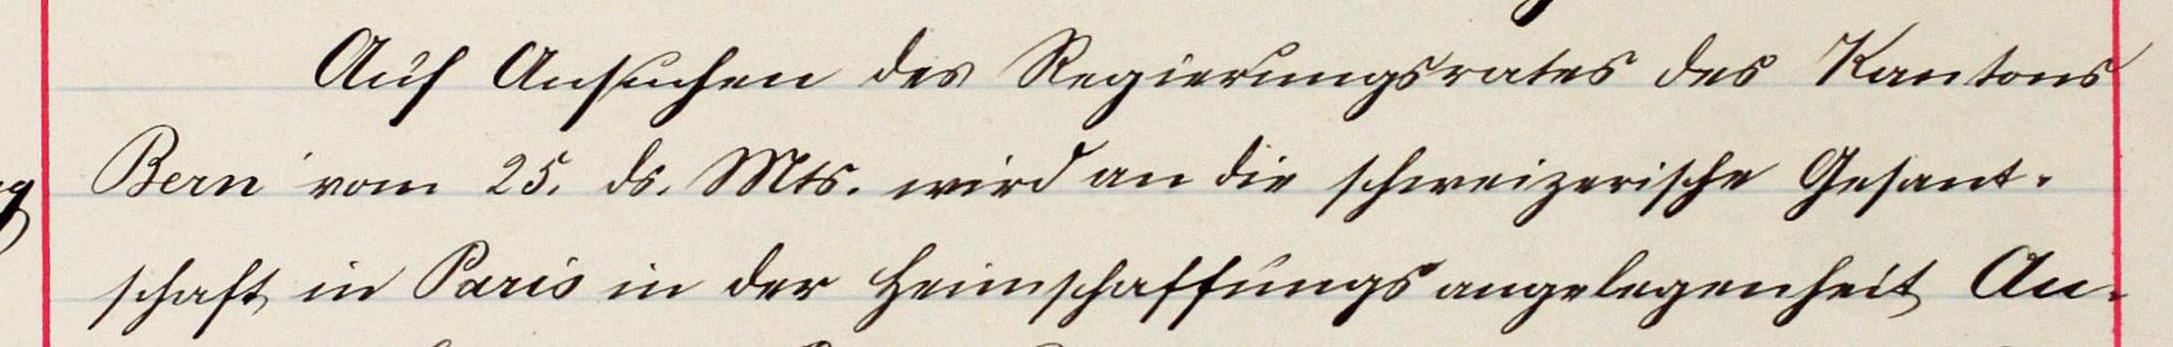 Auf Ansuchen des Regierungsrates des Kantons
Bern vom 25. ds. Mts. wird an die schweizerische Gesant-
schaft in Paris in der Heimschaffungsangelegenheit An-